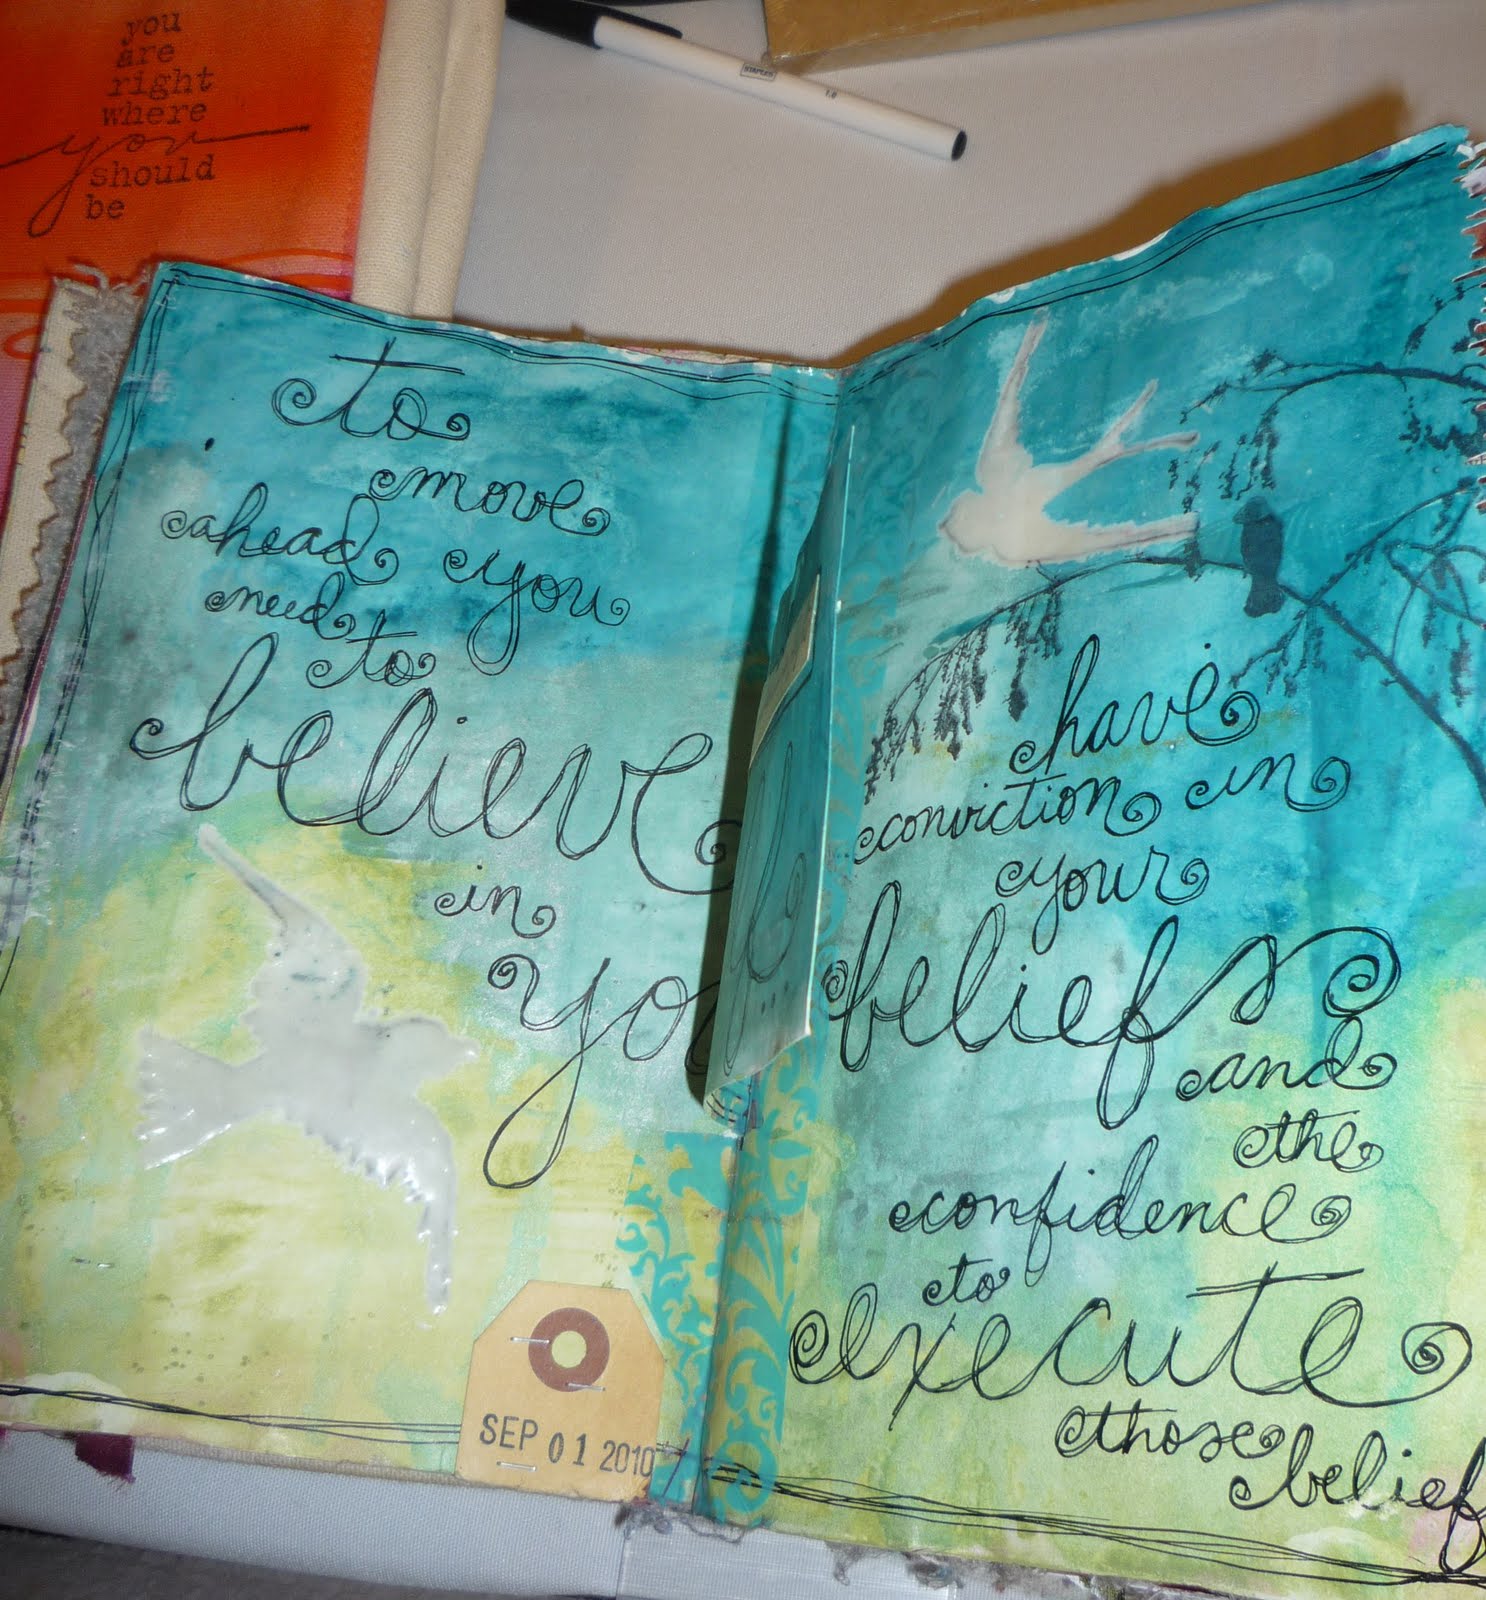 you
are
right
where
you
should
be
STAPLES
1.0
to
move
ahead you
need
to
believe
in
yo
SEP 01 2010
have
conviction in
your
beliefs
and
the
confidence
to
execute
those
belief